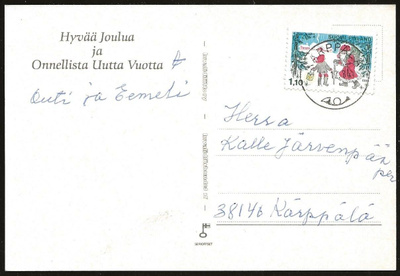 Hyvää Joulua
ja
Onnellista Uutta Vuotta
Outi ja Eemeli
1,10
Herra
Kalle Järvenpää
per
38146 Kärppälä